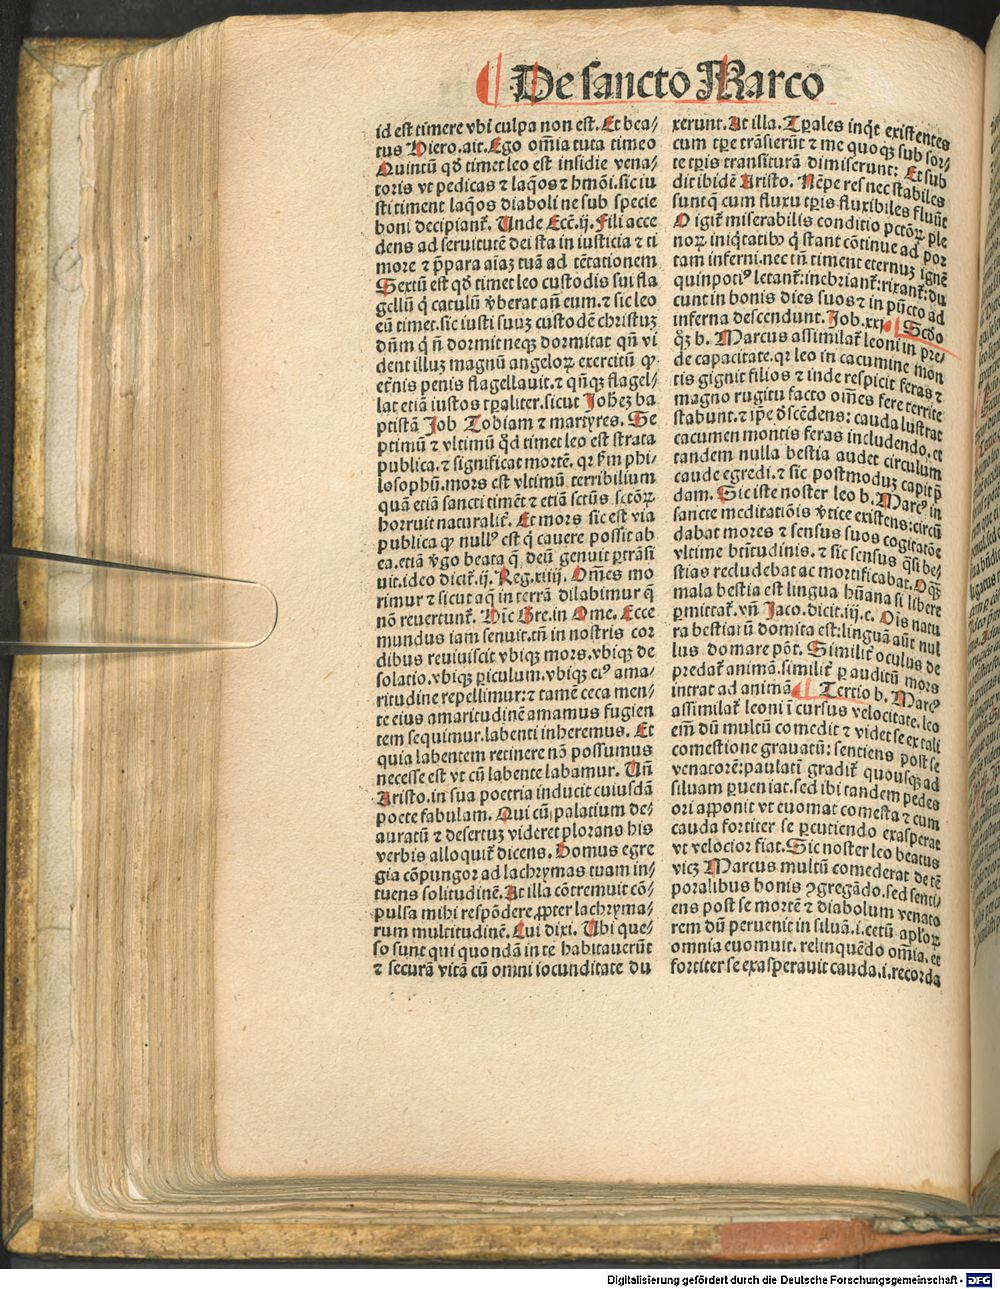 De sanctō Marco
id est timere vbi culpa non est. Et bea/
tus Hiero. ait. Ego om̄ia tuta timeo
Quintū qd̄ timet leo est insidie vena/
toris vt pedicas ⁊ laq̄os ⁊ hmōi. sic iu
sti timent laq̄os diaboli ne sub specie
boni decipiant᷑. Unde Ecc̄. ij. Fili acce
dens ad seruitutē dei sta in iusticia ⁊ ti
more ⁊ p̄para aīaꝫ tuā ad tētationem
Sextū est qd̄ timet leo custodis sui fla
gellū q̇ catulū v̄berat añ eum. ⁊ sic leo
eū timet. sic iusti suuꝫ custodē christuꝫ
dn̄m q̇ n̄ dormit neqꝫ dormitat qn̄ vi
dent illuꝫ magnū angeloꝝ exercitū ꝙ
et̄nis penis flagellauit. ⁊ qn̄qꝫ flagel/
lat etiā iustos tꝑaliter. sicut Joh̄eꝫ ba
ptistā Job Tobiam ⁊ martyres. Se
ptimū ⁊ vltimū qd̄ timet leo est strata
publica. ⁊ significat mortē. qꝛ ẜm phi/
losophū. mors est vltimū terribilium
quā etiā sancti timēt ⁊ etiā sctūs sctōꝝ
horruit naturalit᷑. Et mors sic est via
publica ꝙ nullꝰ est q̇ cauere possit ab
ea. etiā v̄go beata q̄ deū genuit ꝑtrāsi
uit. ideo dicit᷑. ij. Reg. xiiij. Om̄es mo
rimur ⁊ sicut aq̄ in terrā dilabimur q̄
nō reuertunt᷑. Hīc Gre. in Ome. Ecce
mundus iam senuit. tn̄ in nostris cor
dibus reuiuiscit vbiqꝫ mors. vbiqꝫ de
solatio. vbiqꝫ ꝑiculum. vbiqꝫ eiꝰ ama/
ritudine repellimur: ⁊ tamē ceca men/
te eius amaritudinē amamus fugien
tem sequimur. labenti inheremus. Et
quia labentem retinere nō possumus
necesse est vt cū labente labamur. Uñ
Aristo. in sua poetria inducit cuiusdā
poete fabulam. Qui cū palatium de/
auratū ⁊ desertuꝫ videret plorans his
verbis alloquit᷑ dicens. Domus egre
gia cōpungor ad lachrymas tuam in/
tuens solitudinē. At illa cōtremuit cō/
pulsa mihi respōdere ꝓpter lachryma/
rum multitudinē. Cui dixi. Ubi que/
so sunt qui quondā in te habitauerūt
⁊ securā vitā cū omni iocunditate du
xerunt. At illa. Tꝑales inq̇t existentes
cum tꝑe trāsierūt ⁊ me quoqꝫ sub sor/
te tꝑis transiturā dimiserunt: Et sub
dit ibidē Aristo. Nēpe res nec stabiles
sunt q̄ cum fluxu tꝑis fluxibiles fluūt
O igit᷑ miserabilis conditio pctōꝝ ple
noꝝ iniq̇tatibꝰ q̇ stant cōtinue ad por
tam inferni. nec tn̄ timent eternuꝫ ignē
quinpotiꝰ letant᷑: inebriant᷑: rixant᷑: du
cunt in bonis dies suos ⁊ in pūcto ad
inferna descendunt. Job. xxj. Scd̄o
b. Marcus assimilat᷑ leoni in pre/
de capacitate. qꝛ leo in cacumine mon
tis gignit filios ⁊ inde respicit feras ⁊
magno rugitu facto om̄es fere territe
stabunt. ⁊ ip̄e descēdens: cauda lustrat
cacumen montis feras includendo. et
tandem nulla bestia audet circulum
caude egredi. ⁊ sic postmoduꝫ capit p̄
dam. Sic iste noster leo b. Marcꝰ in
sancte meditatiōis v̄tice existens: circū
dabat mores ⁊ sensus suos cogitatōe
vltime btītudinis. ⁊ sic sensus q̄si be/
stias recludebat ac mortificabat. Oqꝫ
mala bestia est lingua hūana si libere
ꝑmittat᷑. vñ Jaco. dicit. iij. c. Ois natu
ra bestiarū domita est: linguā aūt nul
lus domare pōt. Similit᷑ oculus de
predat᷑ animā. similit᷑ ꝑ auditū mors
intrat ad animā Tertio b. Marcꝰ
assimilat᷑ leoni ī cursus velocitate. leo
em̄ dū multū comedit ⁊ videt se ex tali
comestione grauatū: sentiens post se
venatorē: paulatī gradit᷑ quousqꝫ ad
siluam ꝑueniat. sed ibi tandem pedes
ori apponit vt euomat comesta ⁊ cum
cauda fortiter se ꝑcutiendo exasperat
vt velocior fiat. Sic noster leo beatus
vicꝫ Marcus multū comederat de tē
poralibus bonis ꝯgregādo. sed senti/
ens post se mortē ⁊ diabolum venato
rem dū peruenit in siluā. i. cetū apl̄oꝝ
omnia euomuit. relinquēdo om̄ia. et
fortiter se exasperauit cauda. i. recorda
Digitalisierung gefördert durch die Deutsche Forschungsgemeinschaft - DFG